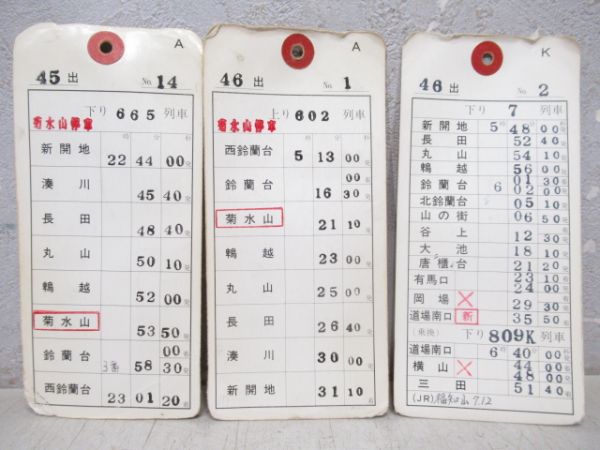 A
45 出 No. 14
下り 665 列車
菊水山停車
新開地 22 44 00発
湊川 45 40発
長田 48 40
丸山 50 10発
鵯越 52 00発
菊水山 53 50発
00着
鈴蘭台 3番 58 30発
西鈴蘭台 23 01 20着
A
46 出 No. 1
上り 602 列車
菊水山停車
西鈴蘭台 5 13 00発
00着
鈴蘭台 16 30発
菊水山 21 10
鵯越 23 00発
丸山 25 00発
長田 26 40発
湊川 30 00発
新開地 31 10着
K
46 出 No. 2
下り 7 列車
新開地 5 48 00発
長田 52 40
丸山 54 10
鵯越 56 00
鈴蘭台 01 30
6 02 00
北鈴蘭台 05 10
山の街 06 50
谷上 12 30
大池 18 10
唐櫃台 21 20
有馬口 23 00
24 00
岡場 29 30
道場南口 新 35 50
(乗換) 下り 809K 列車
道場南口 6 40 00
横山 44 00
48 00
三田 51 40
(JR) 福知山 7.12